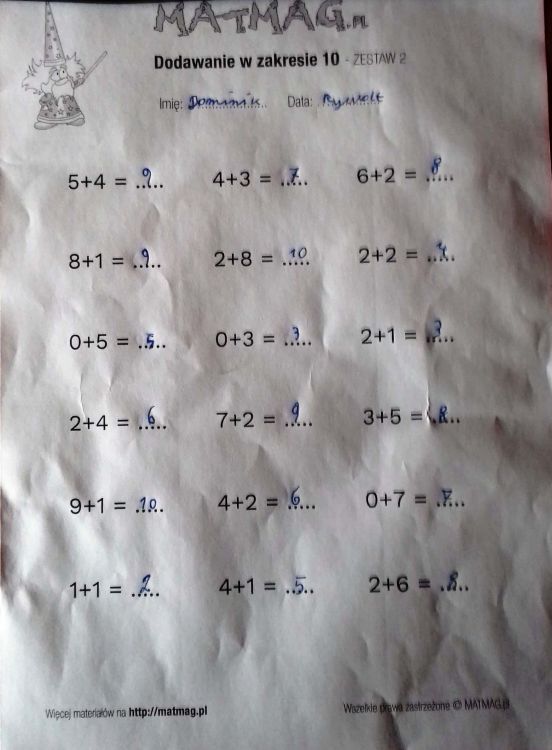 MATMAG.PL
Dodawanie w zakresie 10 - ZESTAW 2
Imię: Dominik Data:
5+4 = 9 4+3 = 7 6+2 = 8
8+1 = 9 2+8 = 10 2+2 = 4
0+5 = 5 0+3 = 3 2+1 = 3
2+4 = 6 7+2 = 9 3+5 = 8
9+1 = 10 4+2 = 6 0+7 = 7
1+1 = 2 4+1 = 5 2+6 = 8
Więcej materiałów na http://matmag.pl Wszelkie prawa zastrzeżone © MATMAG.pl